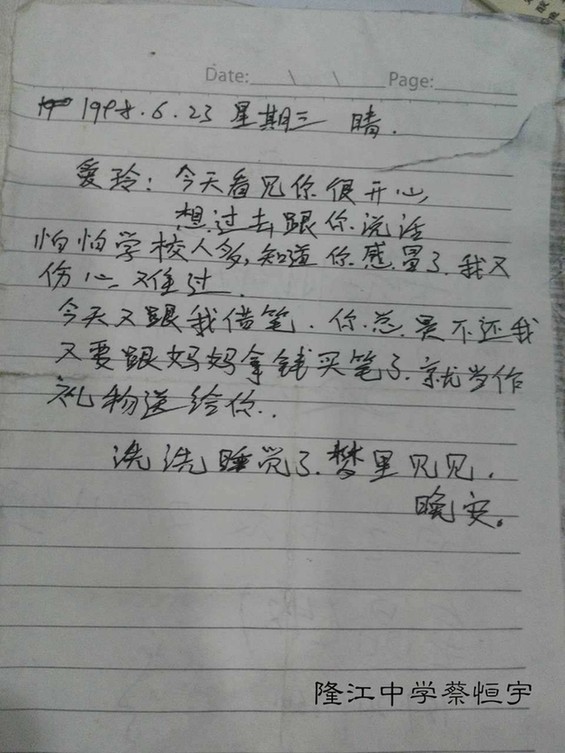 Date:____\____\____ Page:________
1998.6.23 星期三 晴.
爱玲：今天看见你很开心,
想过去跟你说话
怕怕学校人多,知道你感冒了.我又
伤心又难过.
今天又跟我借笔.你总是不还我
又要跟妈妈拿钱买笔了.就当作
礼物送给你..
洗洗睡觉了.梦里见见.
晚安。
隆江中学蔡恒宇